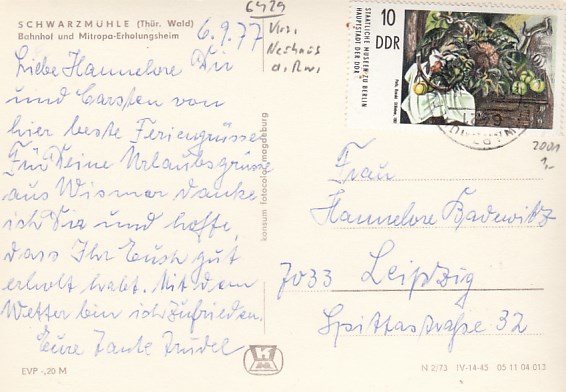 SCHWARZMÜHLE (Thür. Wald)
Bahnhof und Mitropa-Erholungsheim
6.9.77
Liebe Hannelore Dir
und Carsten von
hier beste Feriengrüsse
Für Deine Urlaubsgrüsse
aus Wismar danke
ich Dir und hoffe,
dass Ihr Euch gut
erholt habt. Mit dem
Wetter bin ich zufrieden.
Eure Tante Trudel
EVP -,20 M
konsum fotocolor magdeburg
6429
Neuhaus
a. Rw.
10
DDR
STAATLICHE MUSEEN ZU BERLIN
HAUPTSTADT DER DDR
2001
1,-
Frau
Hannelore Badewitz
7033 Leipzig
Spittastraße 32
N 2/73 IV-14-45 05 11 04 013